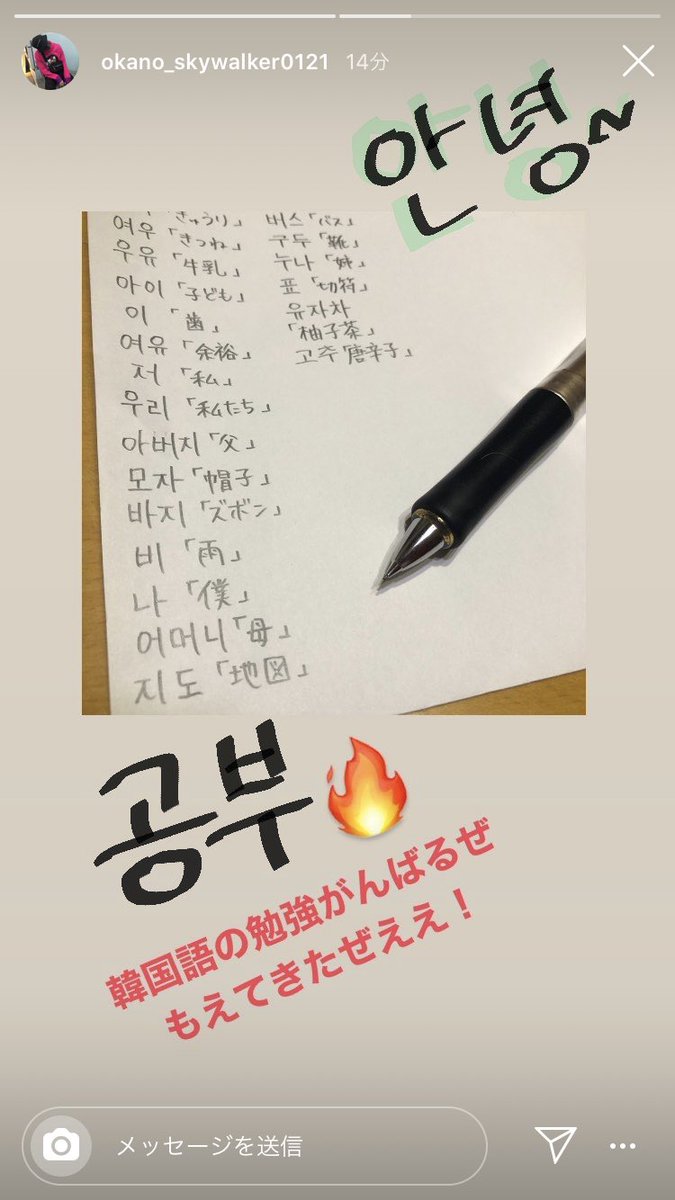 okano_skywalker0121 14分
안녕~
「きゅうり」
여우「きつね」
우유「牛乳」
아이「子ども」
이「歯」
여유「余裕」
저「私」
우리「私たち」
아버지「父」
모자「帽子」
바지「ズボン」
비「雨」
나「僕」
어머니「母」
지도「地図」
버스「バス」
구두「靴」
누나「姉」
표「切符」
유자차
「柚子茶」
고추「唐辛子」
공부
韓国語の勉強がんばるぜ
もえてきたぜええ!
メッセージを送信